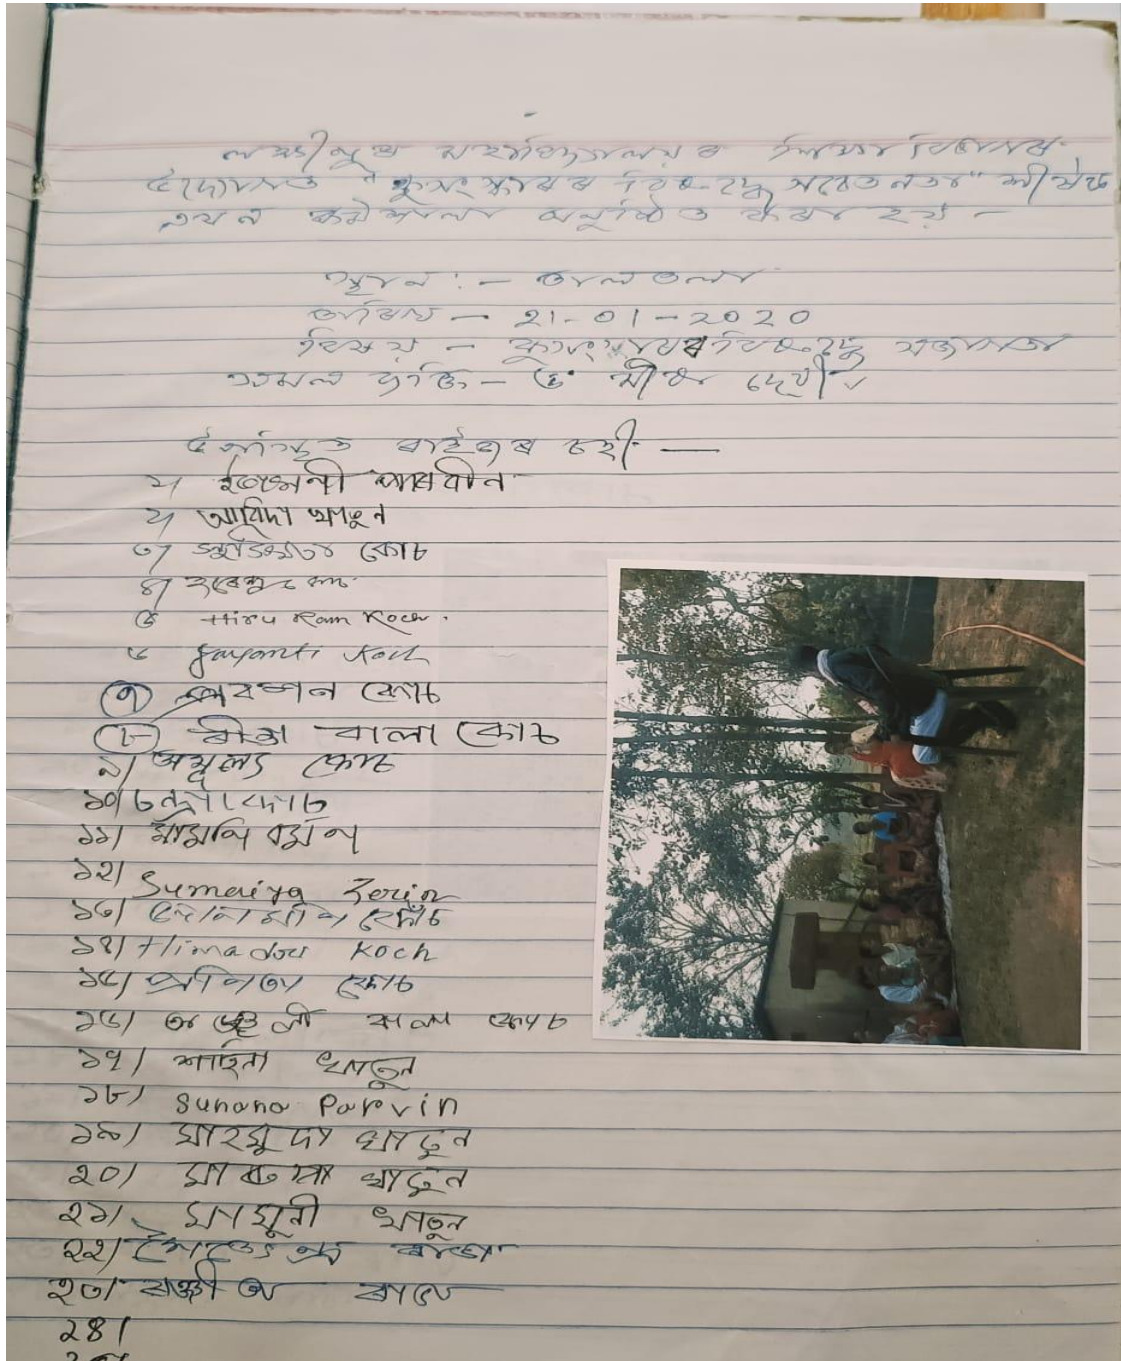 লক্ষীপুৰ মহাবিদ্যালয়ৰ শিক্ষা বিভাগৰ
উদ্যোগত "কুসংস্কাৰৰ বিৰুদ্ধে সচেতনতা" শীৰ্ষক
এখন কৰ্মশালা অনুষ্ঠিত কৰা হয় -
স্থান :- তালতলা
তাৰিখ - 21-01-2020
বিষয় - কুসংস্কাৰৰ বিৰুদ্ধে সজাগতা
সমল ব্যক্তি - ড° মীৰা দেৱী
উপস্থিত ৰাইজৰ চহী —
১/ পাৰবীন
২/ আবিদা খাতুন
৩/ কোচ
৪/
৫ Hiru Ram Koch.
৬ Jayanti Koch
৭ কোচ
৮ ৰীতা বালা কোচ
৯/ অমূল্য কোচ
১০/ চন্দ্ৰা কোচ
১১/ মামনি বৰ্মন
১২/ Sumaiya Zerin
১৩/ কোঁচ
১৪/ Himadou Koch
১৫/ প্ৰনিতা কোচ
১৬/ বালা কোচ
১৭/ শাহিনা খাতুন
১৮/ Sunana Parvin
১৯/ মাহমুদা খাতুন
২০/ খাতুন
২১/ মামুনী খাতুন
২২/ ৰাভা
২৩/ ৰঞ্জীত ৰাভা
২৪/